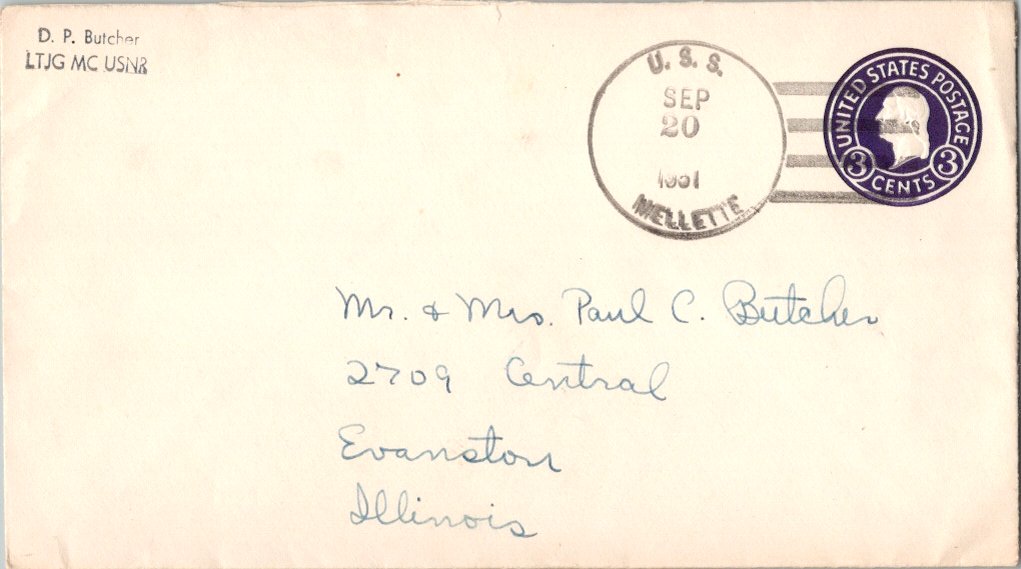 D. P. Butcher
LTJG MC USNR
U. S. S.
SEP
20
1951
MELLETTE
UNITED STATES POSTAGE
3 3
CENTS
Mr. & Mrs. Paul C. Butcher
2709 Central
Evanston
Illinois